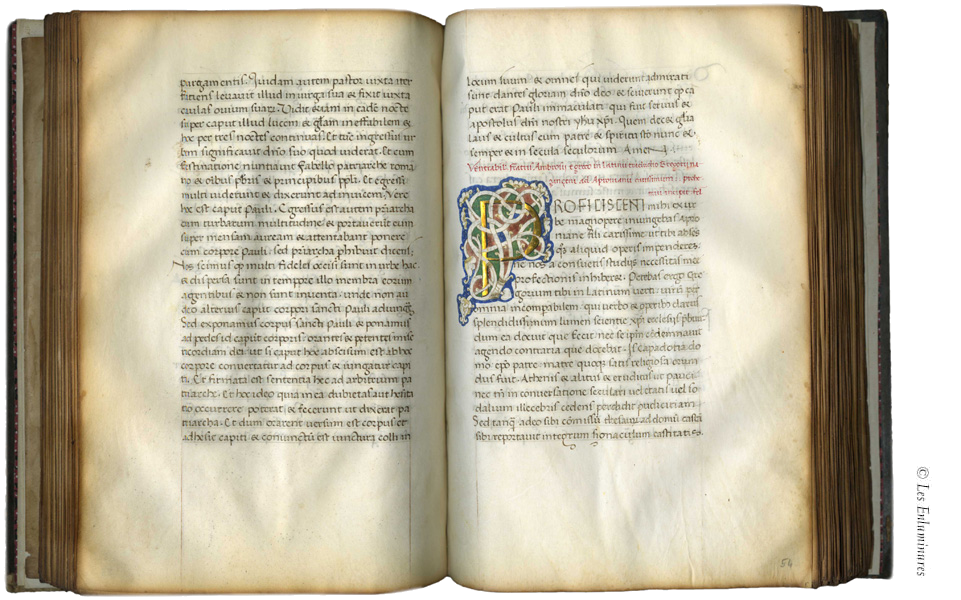 purgamentis. Quidam autem pastor iuxta iter
titiens leuauit illud in uirga sua & fixit iuxta
caulas ouium suarum. Vidit & iam in eadē nocte
super caput illud lucem & gloriā ineffabilem &
hec per tres noctes continuas. Et tūc ingressus ur
bem significauit dño suo quod uiderat. Et cum
festinatione nuntiauit Fabello patriarche roma
no & oībus pbris & principibus ppli. Et egressi
multi uiderunt & dixerunt ad inuicem. Vere
hec est caput Pauli. Egressus est autem priarcha
cum turbarum multitudine & portauerunt eum
super mensam auream & attentabant ponere
cum corpore Pauli. sed priarcha phibuit dicens:
Nos scimus qp multi fideles occisi sunt in urbe hac
& dispersa sunt in tempore illo membra eorum
agentibus & non sunt inuenta. unde non au
deo alterius caput corpori sancti Pauli adiungē.
Sed exponamus corpus sancti Pauli & ponamus
ad pedes id caput corporis. orantes & petentes mise
ricordiam dei. ut si caput hoc abscisum est ab hoc
corpore conuertatur ad corpus & iungatur capi
ti. Et firmata est sententia hec ad arbitrium pa
triarche. Et hoc ideo quia mea dubietas aut hesita
tio occurrere poterat & fecerunt ut dixerat pa
triarcha. Et dum orarent uersum est corpus et
adhesit capiti & coniunctū est iunctura colli in
locum suum. & omnes qui uiderunt admirati
sunt dantes gloriam dño deo & scierunt qp ca
put erat Pauli immaculati. qui fuit seruus &
apostolus dñi nostri yhu xpi. Quem dec& glia
laus & cultus cum patre & spiritu sctō nunc &
semper & in secula seculorum Amen
Venerabilis fratris Ambrosii e greco in latinum
PROFICISCENTI mihi ex ur
be magnopere iniungebas Apro
niane fili carissime ut tibi ab less
qs aliquid operis impenderes.
ne nos a consuetis studiis necessitas mee
profectionis inhiberet. Petebas ergo Gre
gorium tibi in Latinum uerti. uirū per
omnia incompabilem. qui uerbo & operibo clarus
splendidissimum lumen scientie xpi ecclesiis pbuit
dum ea docuit que fecit nec se ipm cōdemnauit
agendo contraria que docebat. Is capadotia do
mo. epō patre matre quoqz satis religiosa oriun
dus fuit. Athenis & alitus & eruditus ut pauci.
nec tñ in conuersatione seculari uel etatis uel so
dalium illecebris cedens perdidit pudicitiam.
Sed tanqz adeo sibi cōmissū thesaurum ad domū casti
sibi reportauit integrum signaculum castitatis.
54
© Les Enluminures